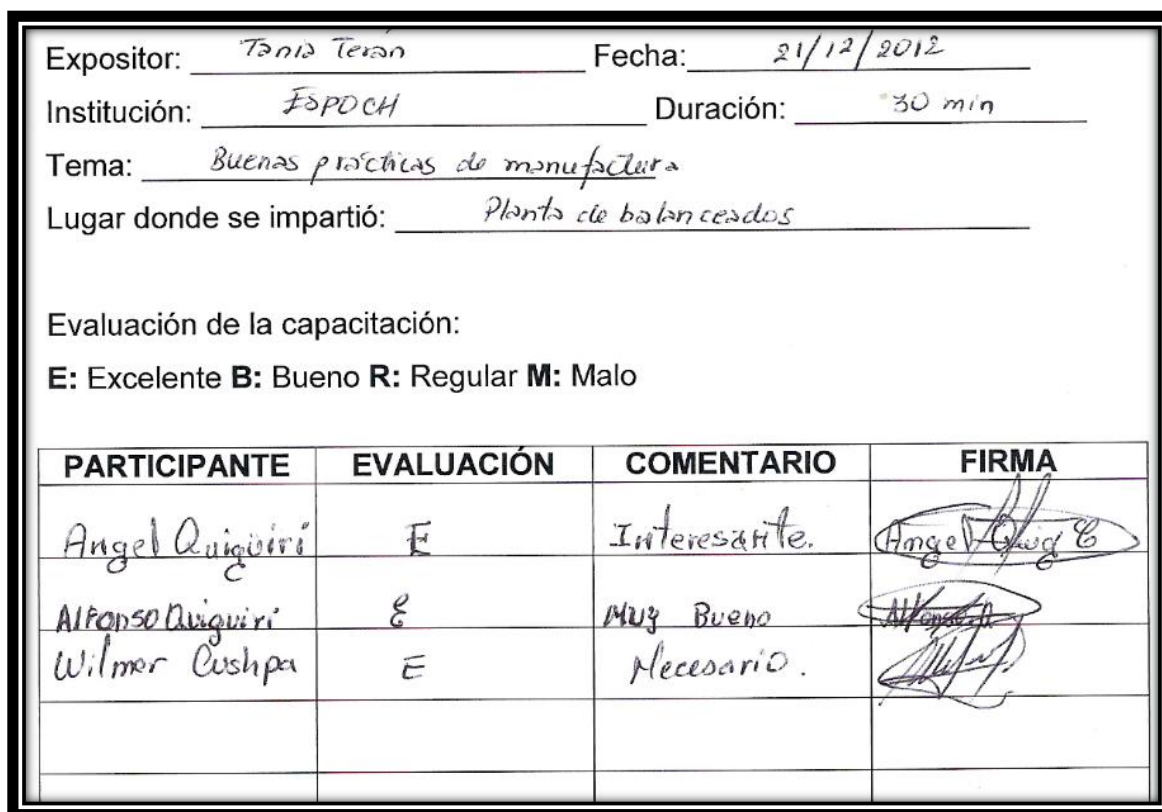 Expositor: Tania Terán Fecha: 21/12/2012
Institución: ESPOCH Duración: 30 min
Tema: Buenas prácticas de manufactura
Lugar donde se impartió: Planta de balanceados
Evaluación de la capacitación:
E: Excelente B: Bueno R: Regular M: Malo
PARTICIPANTE EVALUACIÓN COMENTARIO FIRMA
Angel Quiguiri E Interesante. Angel Quig
Alfonso Quiguiri E Muy Bueno Alfonso Q
Wilmer Cushpa E Necesario.